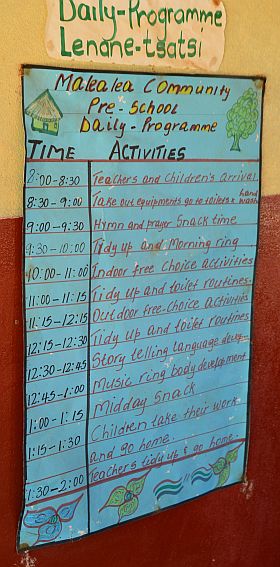 Daily-Programme
Lenane-tsatsi
Malealea Community
Pre-School
Daily-Programme
TIME ACTIVITIES
8:00-8:30 Teachers and Children's arrival
8:30-9:00 Take out equipments go to toilets & hand wash
9:00-9:30 Hymn and prayer Snack time
9:30-10:00 Tidy up and Morning ring
10:00-11:00 Indoor free choice activities
11:00-11:15 Tidy up and toilet routines
11:15-12:15 Outdoor free-choice activities
12:15-12:30 Tidy up and toilet routines
12:30-12:45 Story telling language
12:45-1:00 Music ring body development
1:00-1:15 Midday Snack
1:15-1:30 Children take their work
and go home.
1:30-2:00 Teachers tidy up & go home